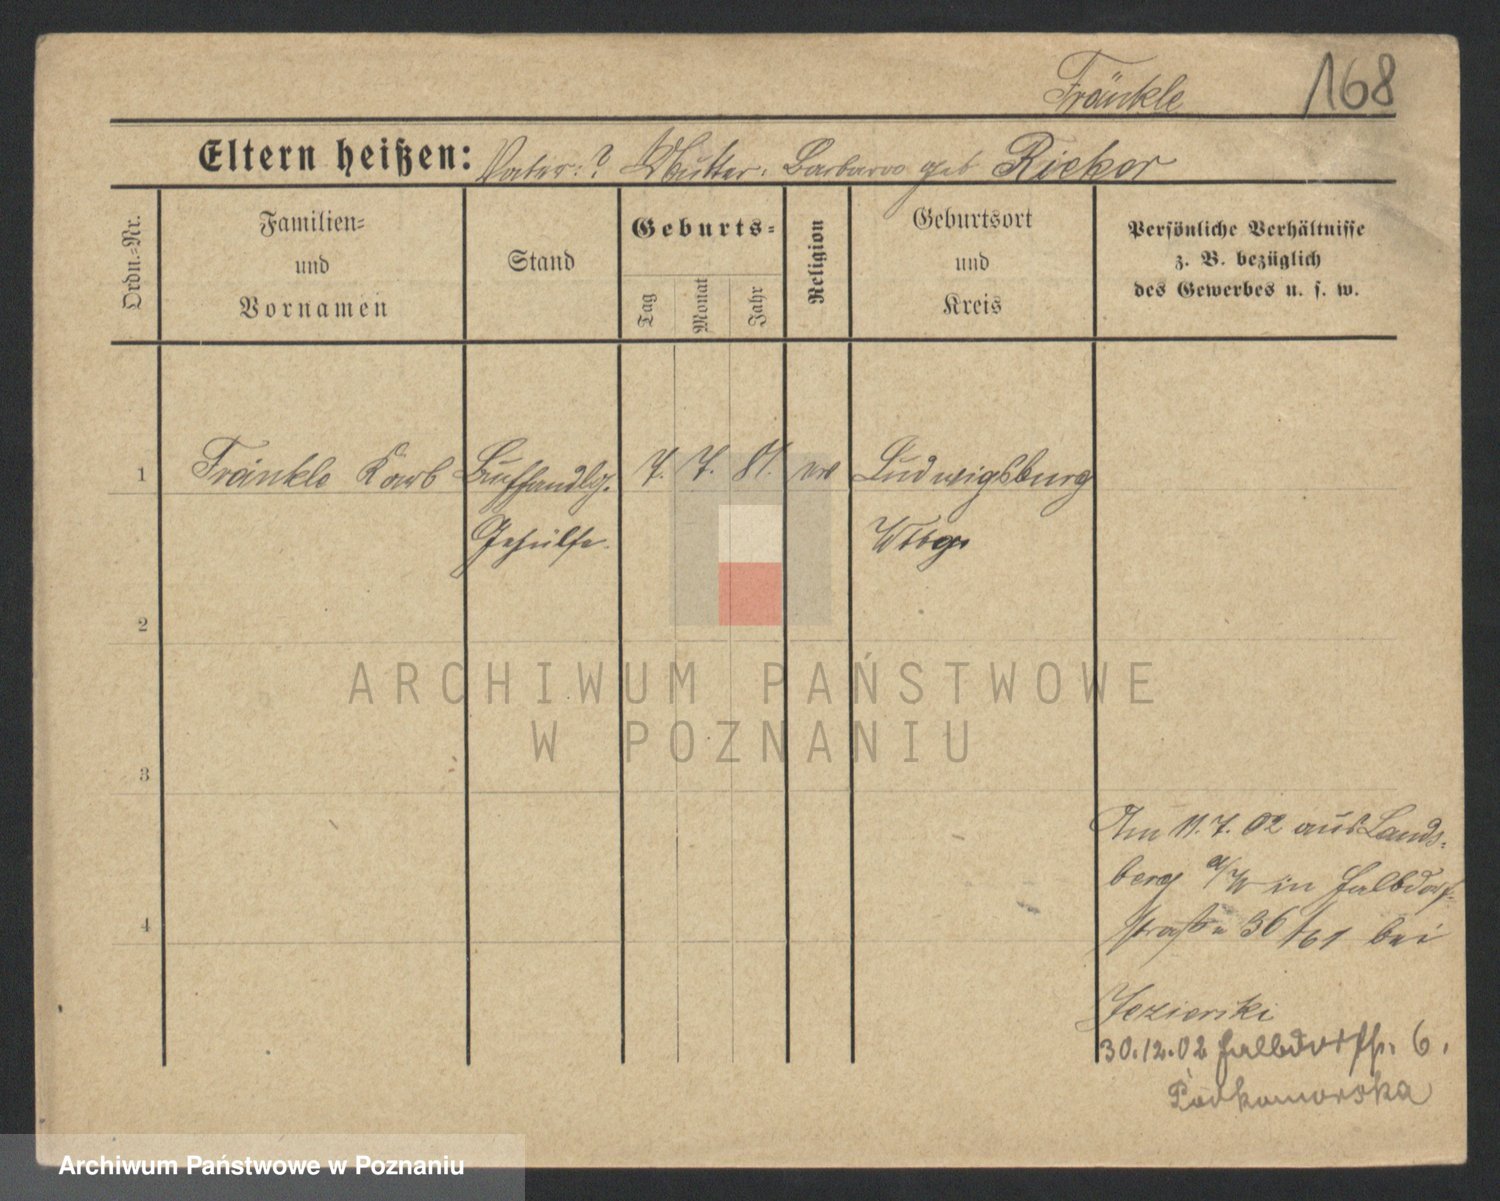 Fränkle 168
Eltern heißen: Vater: ? Mutter: Barbara geb Rieker
Ordn.-Nr.
Familien-
und
Vornamen
Stand
Geburts-
Tag
Monat
Jahr
Religion
Geburtsort
und
Kreis
Persönliche Verhältnisse
z. B. bezüglich
des Gewerbes u. s. w.
1 Fränkle Karl Buchhandlg. 7. 7. 81. ev Ludwigsburg
Gehülfe. Wtbg
2
3
4
Am 11.7.02 aus Lands-
berg a/W in Halbdorf-
straße 36/61 bei
Jezierski
30.12.02 Halbdorfstr. 6.
Podkomorska
ARCHIWUM PAŃSTWOWE
W POZNANIU
Archiwum Państwowe w Poznaniu